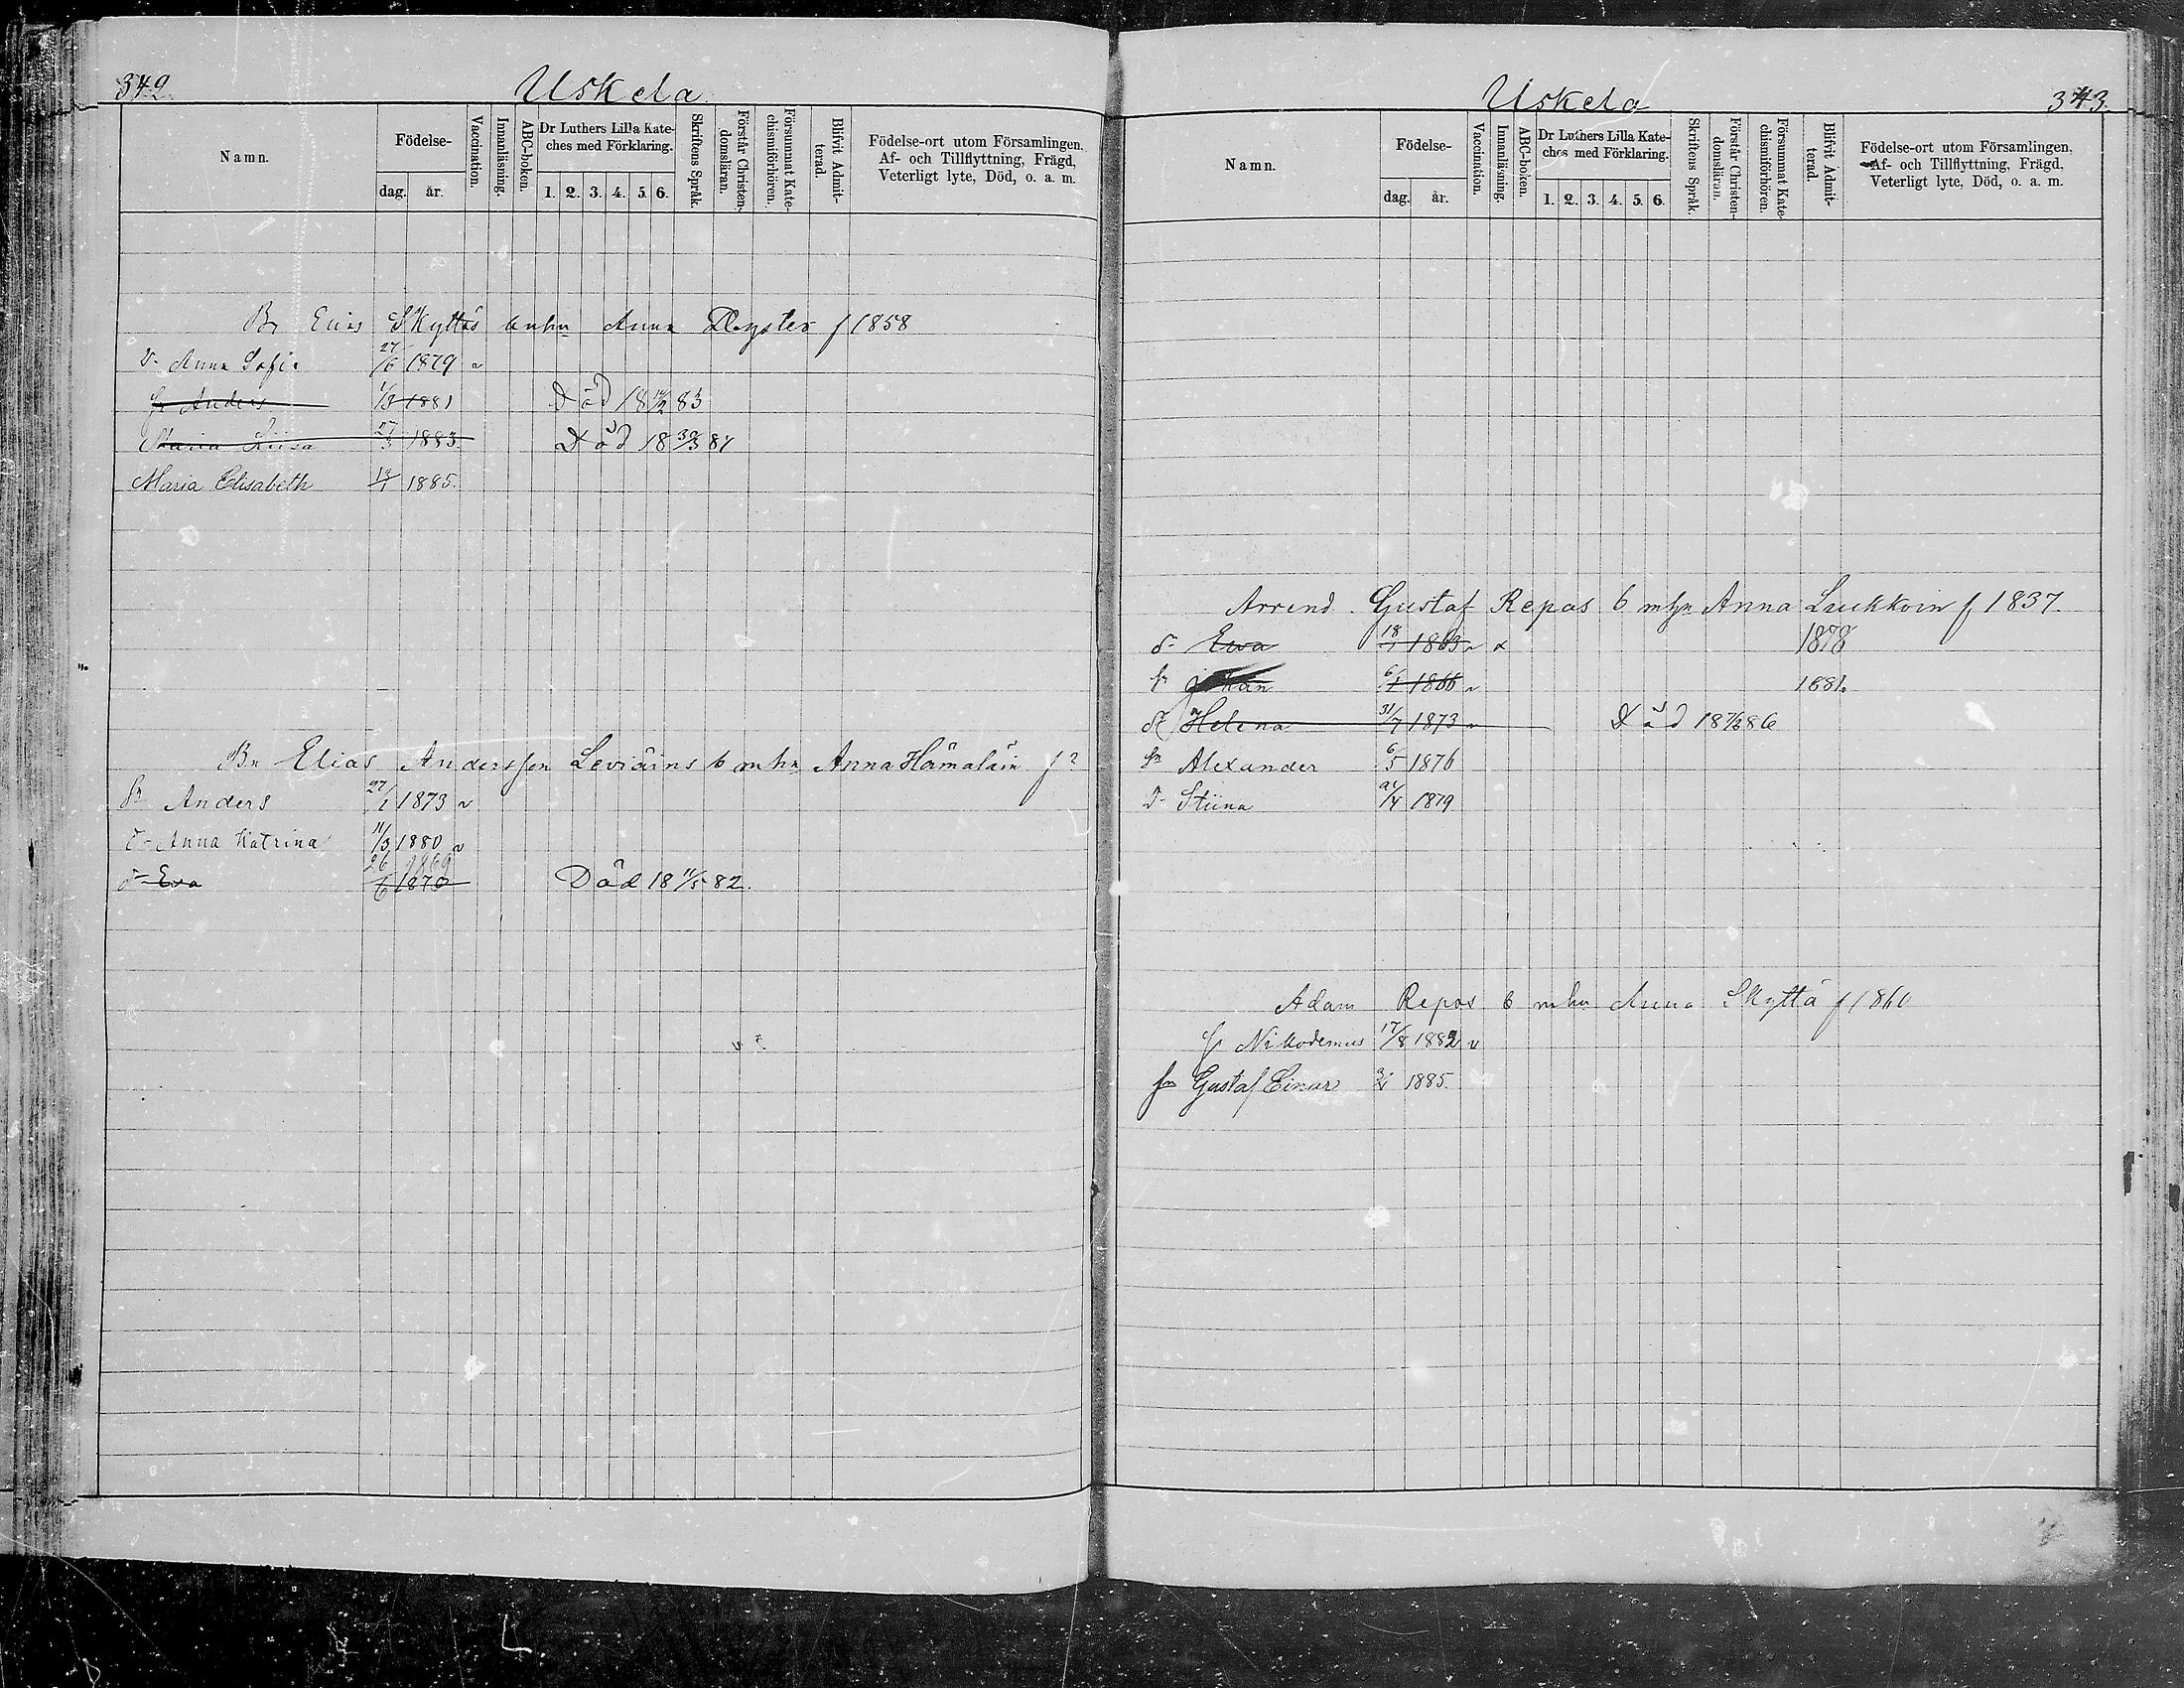 342.
Uskela.
Namn.
Födelse-
dag. år.
Vaccination.
Innanläsning.
ABC-boken.
Dr Luthers Lilla Kate-
ches med Förklaring.
1. 2. 3. 4. 5. 6.
Skriftens Språk.
Förstår Christen-
domsläran.
Försummat Kate-
chismiförhören.
Blifvit Admit-
terad.
Födelse-ort utom Församlingen.
Af- och Tillflyttning, Frägd,
Veterligt lyte, Död, o. a. m.
Skyttäs Anna f 1858
Anna Sofia 27/6 1879
Anders 1/3 1881 Död 18 83
Maria 27/3 1883. Död 18 30/3 84
Maria Elisabeth 13/1 1885.
Bn Elias Andersson Leviäins 6 mhn Anna Hämäläin f ?
sn Anders 27/1 1873
d- Anna Katrina 11/3 1880
26 1869
d- Eva 6 1870 Död 18 11/5 82.
Uskela
343.
Namn.
Födelse-
dag. år.
Vaccination.
Innanläsning.
ABC-boken.
Dr Luthers Lilla Kate-
ches med Förklaring.
1. 2. 3. 4. 5. 6.
Skriftens Språk.
Förstår Christen-
domsläran.
Försummat Kate-
chismiförhören.
Blifvit Admit-
terad.
Födelse-ort utom Församlingen,
Af- och Tillflyttning, Frägd,
Veterligt lyte, Död, o. a. m.
Arrend. Gustaf Repos 6 mhn Anna Luukkoin f 1837.
d- Ewa 18/1 1863 1878
sn Johan 6/1 1866 1881.
Helena 31/7 1873 Död 18 86
sn Alexander 6/5 1876
d- Stiina 1879
Adam Repos 6 mhn Anna Skyttä f 1860
Nikodemus 17/8 1882
sn Gustaf Einar 1885.